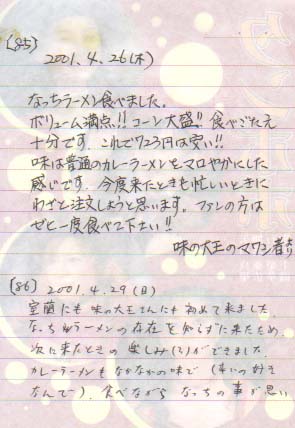 〔85〕
2001.4.26(木)
なっちラーメン食べました。
ボリューム満点!! コーン大盛!! 食べごたえ
十分です。これで723円は安い!!
味は普通のカレーラーメンをマロやかにした
感じです。今度来たときも忙しいときに
わざと注文しようと思います。ファンの方は
ぜひ一度食べて下さい!!
味の大王のマワシ者より
〔86〕 2001.4.29(日)
室蘭にも味の大王さんにも初めて来ました
なっちゅラーメンの存在を知らずに来たため
次に来たときの楽しみ(?)ができました。
カレーラーメンもなかなかの味で(辛いの好き
なんで)、食べながら なっちの事が思い